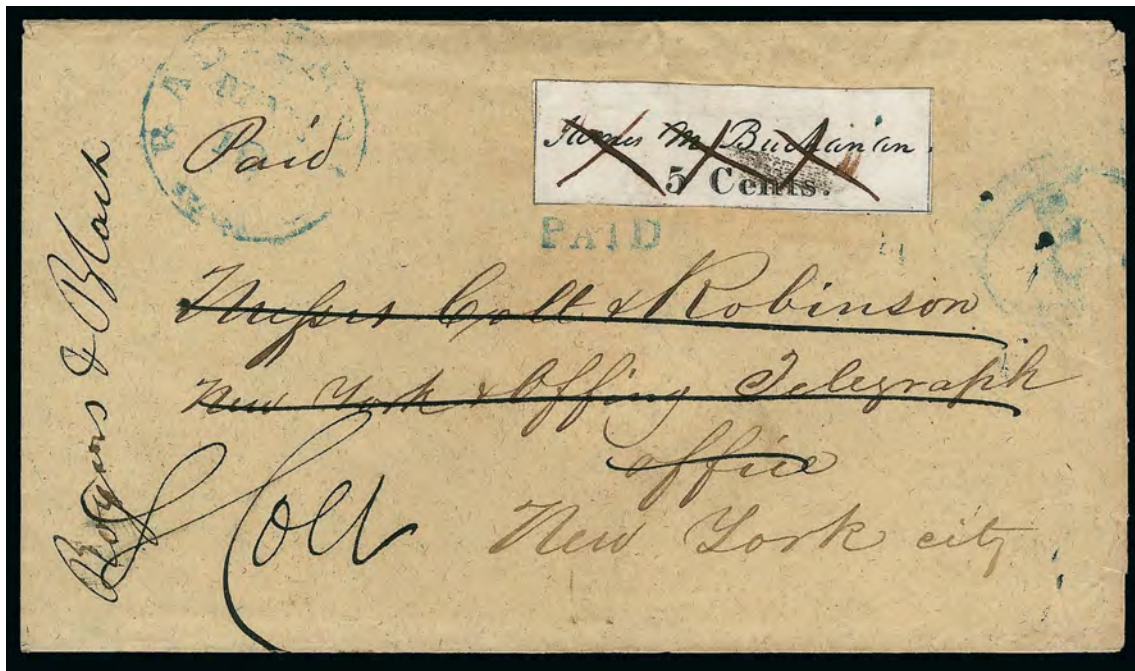 Paid
James M. Buchanan.
5 Cents.
PAID
Messrs Colt & Robinson
New York & Offing Telegraph
office
New York city
Colt